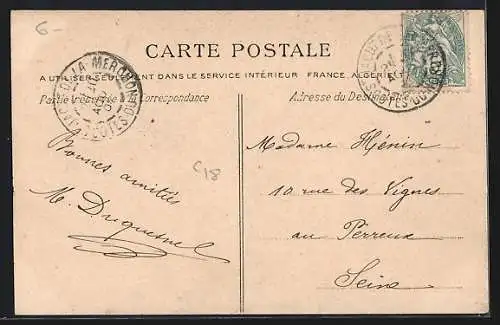 6-
CARTE POSTALE
A UTILISER SEULEMENT DANS LE SERVICE INTÉRIEUR FRANCE, ALGÉRIE
Partie réservée à la Correspondance
Adresse du Destinataire
C18
Bonnes amitiés
M. Duquesnel
Madame Hénin
10 rue des Vignes
au Perreux
Seine